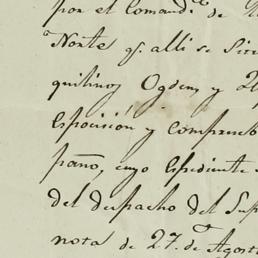 por el Comand.te de
Norte q. alli se
quilinos Ogden, y
Esposición y Comprueb
pano, cuyo Espediente
del despacho del Sup
nota de 27. de Agost